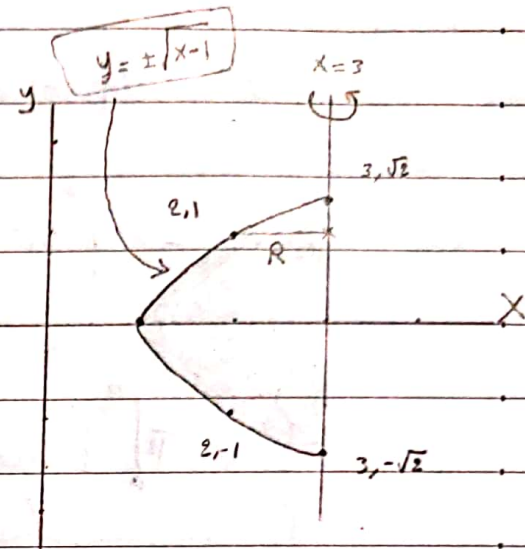 y = ±√x-1
x=3
y
3,√2
2,1
R
X
2,-1
3,-√2